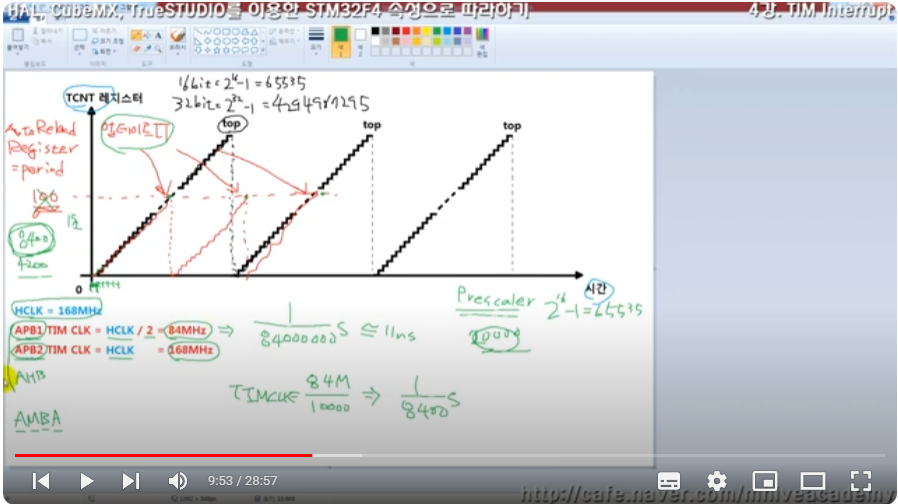 HAL, CubeMX, TrueSTUDIO를 이용한 STM32F4 속성으로 따라하기
4강. TIM Interrupt
16bit = 2^16-1 = 65535
32bit = 2^32-1 = 4294967295
TCNT 레지스터
top
top
top
Auto Reload
Register
= period
업데이트
100
1초
8400
4200
0
시간
HCLK = 168MHz
APB1 TIM CLK = HCLK / 2 = 84MHz ⇒ 1/84000000 S ≅ 11ns
APB2 TIM CLK = HCLK = 168MHz
Prescaler 2^16-1=65535
10000
AHB
AMBA
TIMCLK 84M/10000 ⇒ 1/8400 S
9:53 / 28:57
http://cafe.naver.com/mniveacademy